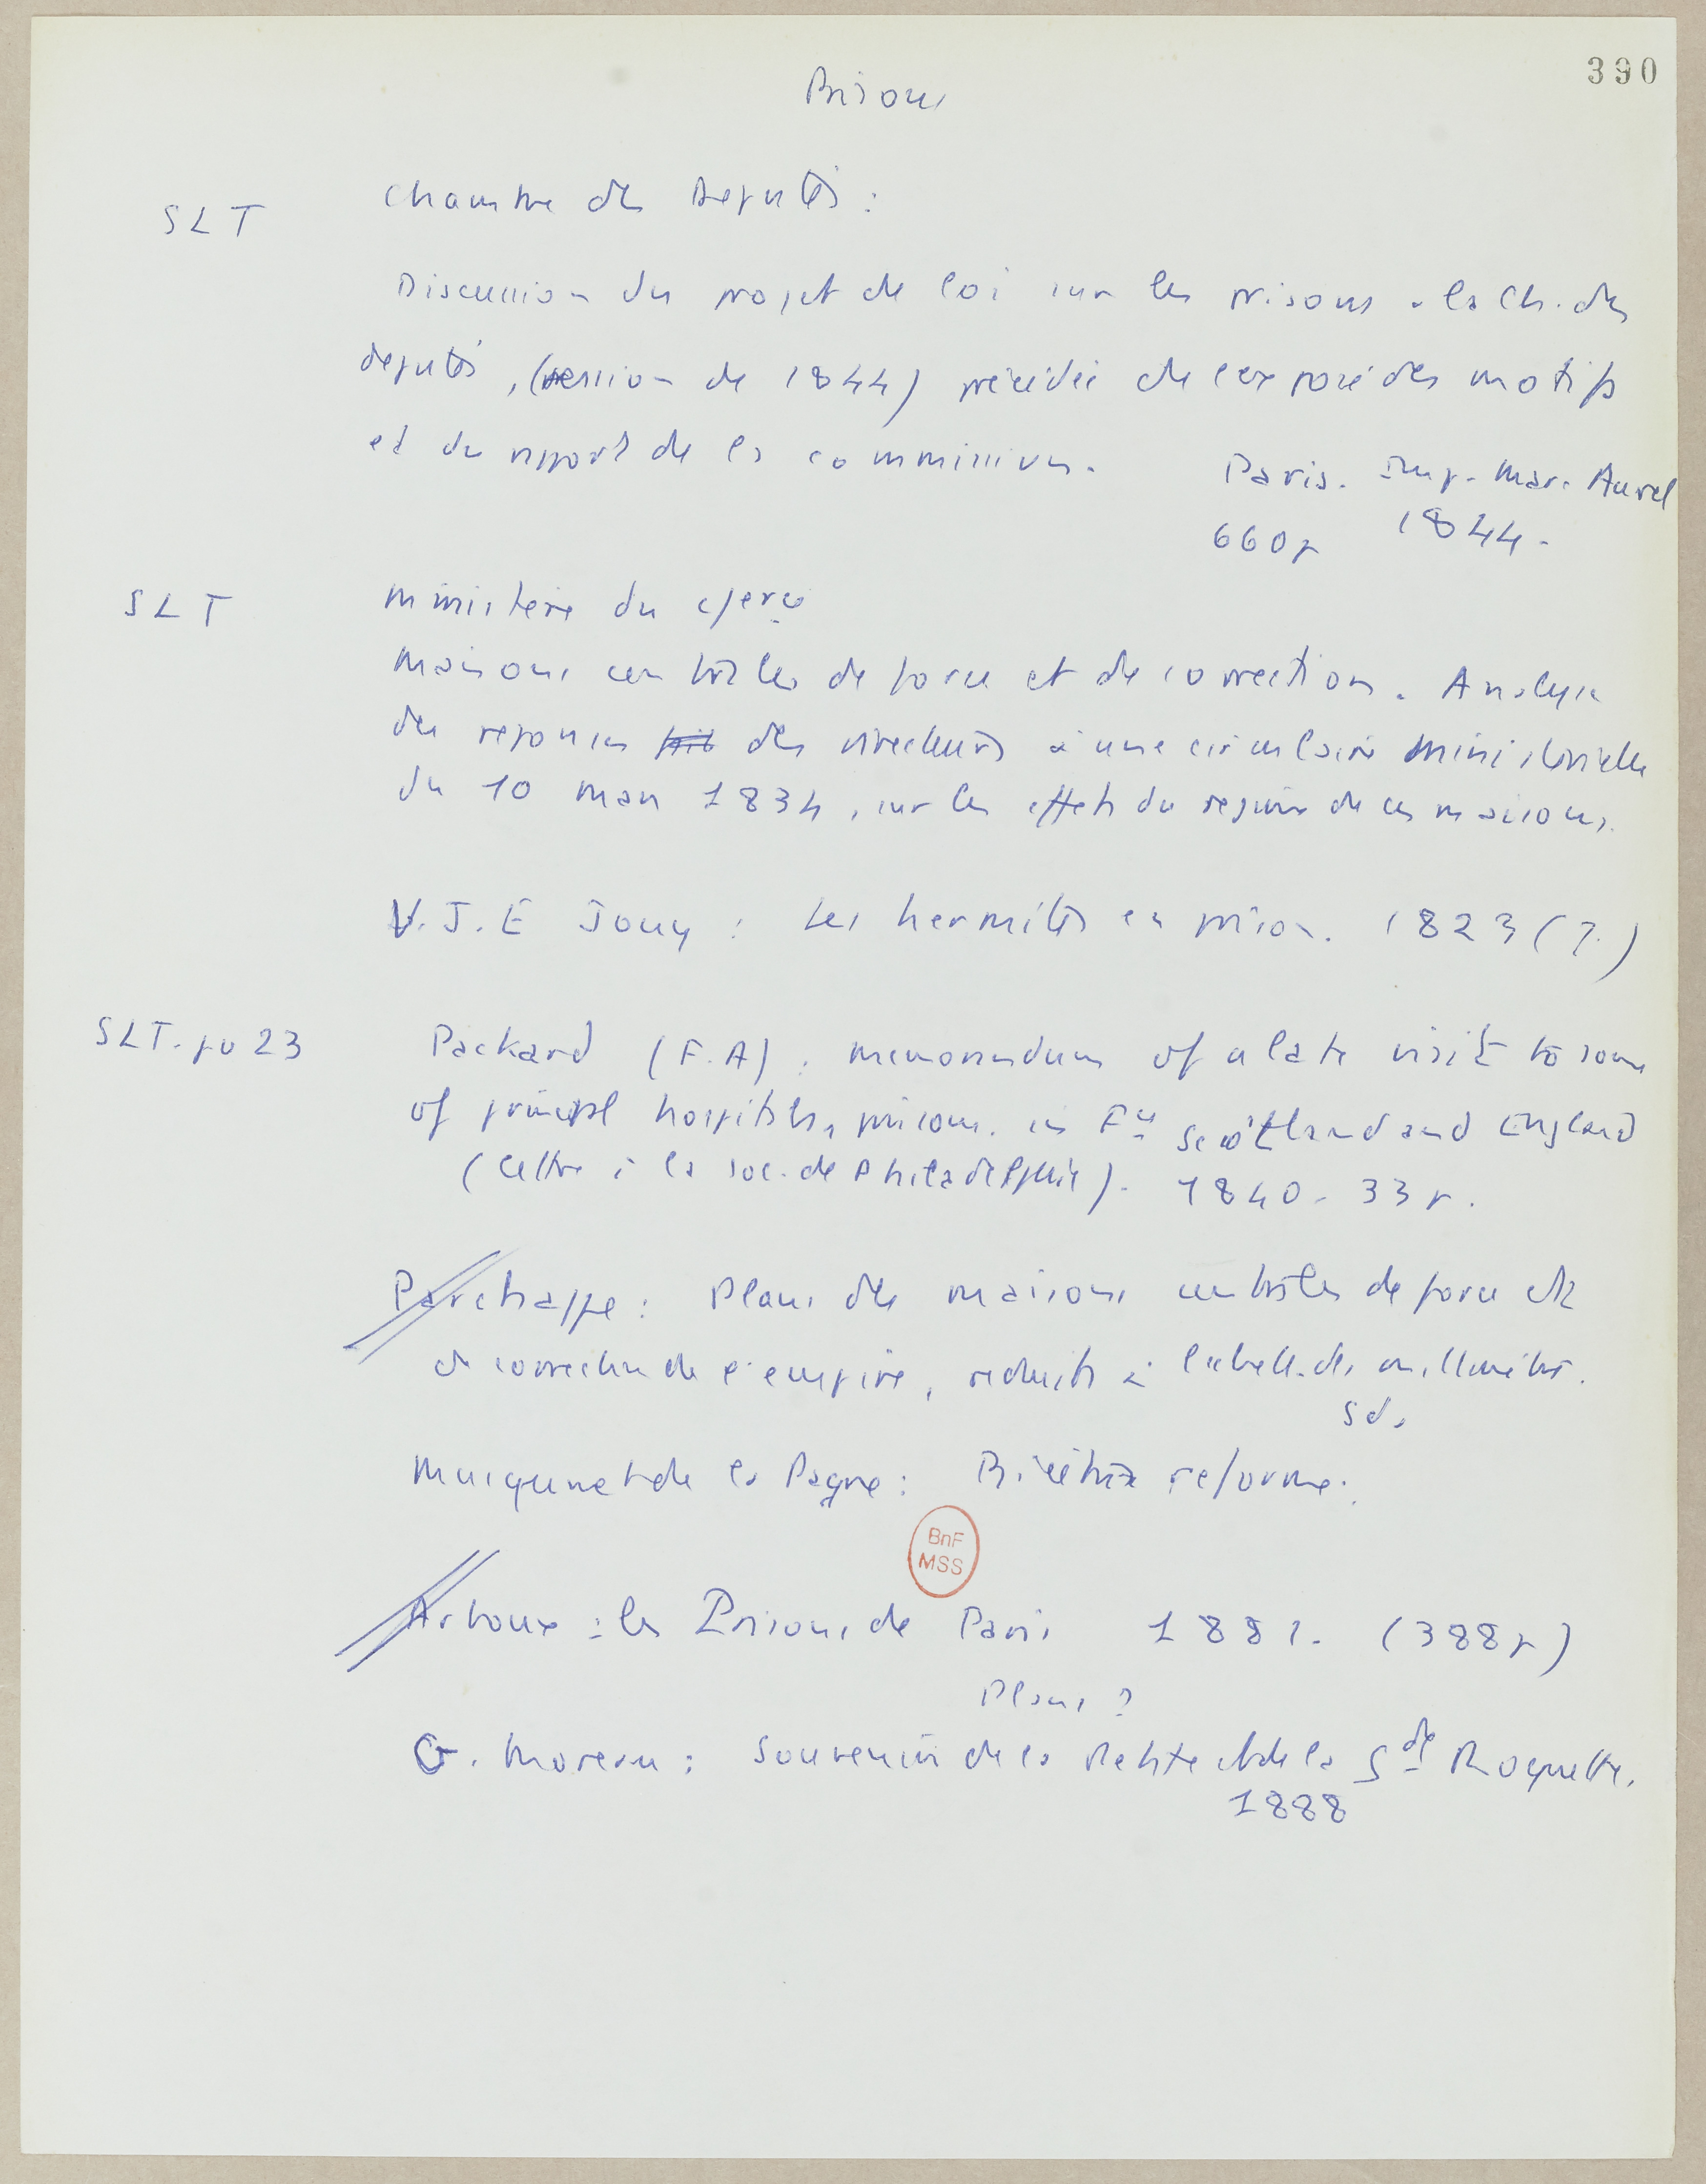 390
Prisons
SLT
Chambre des Députés :
Discussion du projet de loi sur les prisons à la Ch. des
députés, (session de 1844) précédée de l'exposé des motifs
et du rapport de la commission.
Paris. Imp. Marc Aurel
660p 1844.
SLT
Ministère du
Maisons centrales de force et de correction. Analyse
des réponses des directeurs à une circulaire ministérielle
du 10 mars 1834, sur les effets du régime de ces maisons.
V.J.E Jouy : Les hermites en prison. 1823 (?)
SLT. 23
Packard (F.A) : memorandum of a late visit to some
of principal hospitals, prisons. in Fce Scotland and England
(lettre à la soc. de Philadelphie). 1840. 33p.
Parchappe : Plans des maisons centrales de force et
de correction de l'empire, réduits à l'échelle des millimètres.
sd.
Musquinet de la Pagne : Bicêtre réformé.
Arboux : les Prisons de Paris 1881. (388p)
Plans ?
G. Moreau : Souvenirs de la Petite et de la Gde Roquette.
1888
BnF
MSS